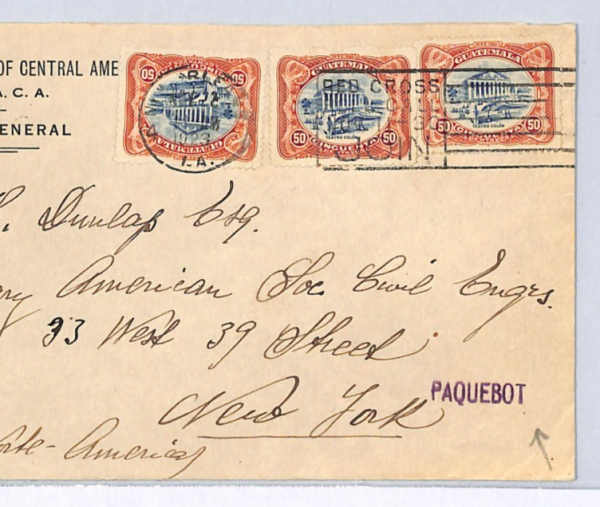 OF CENTRAL AME
. A. C. A.
ENERAL
GUATEMALA
50 50
GUATEMALA
TEATRO COLON
50 50
GUATEMALA
TEATRO COLON
50
LA.
RED CROSS
JOIN
. Dunlap Esq.
ry American Soc Civil Engrs.
33 West 39 Street
New York
PAQUEBOT
rte-America